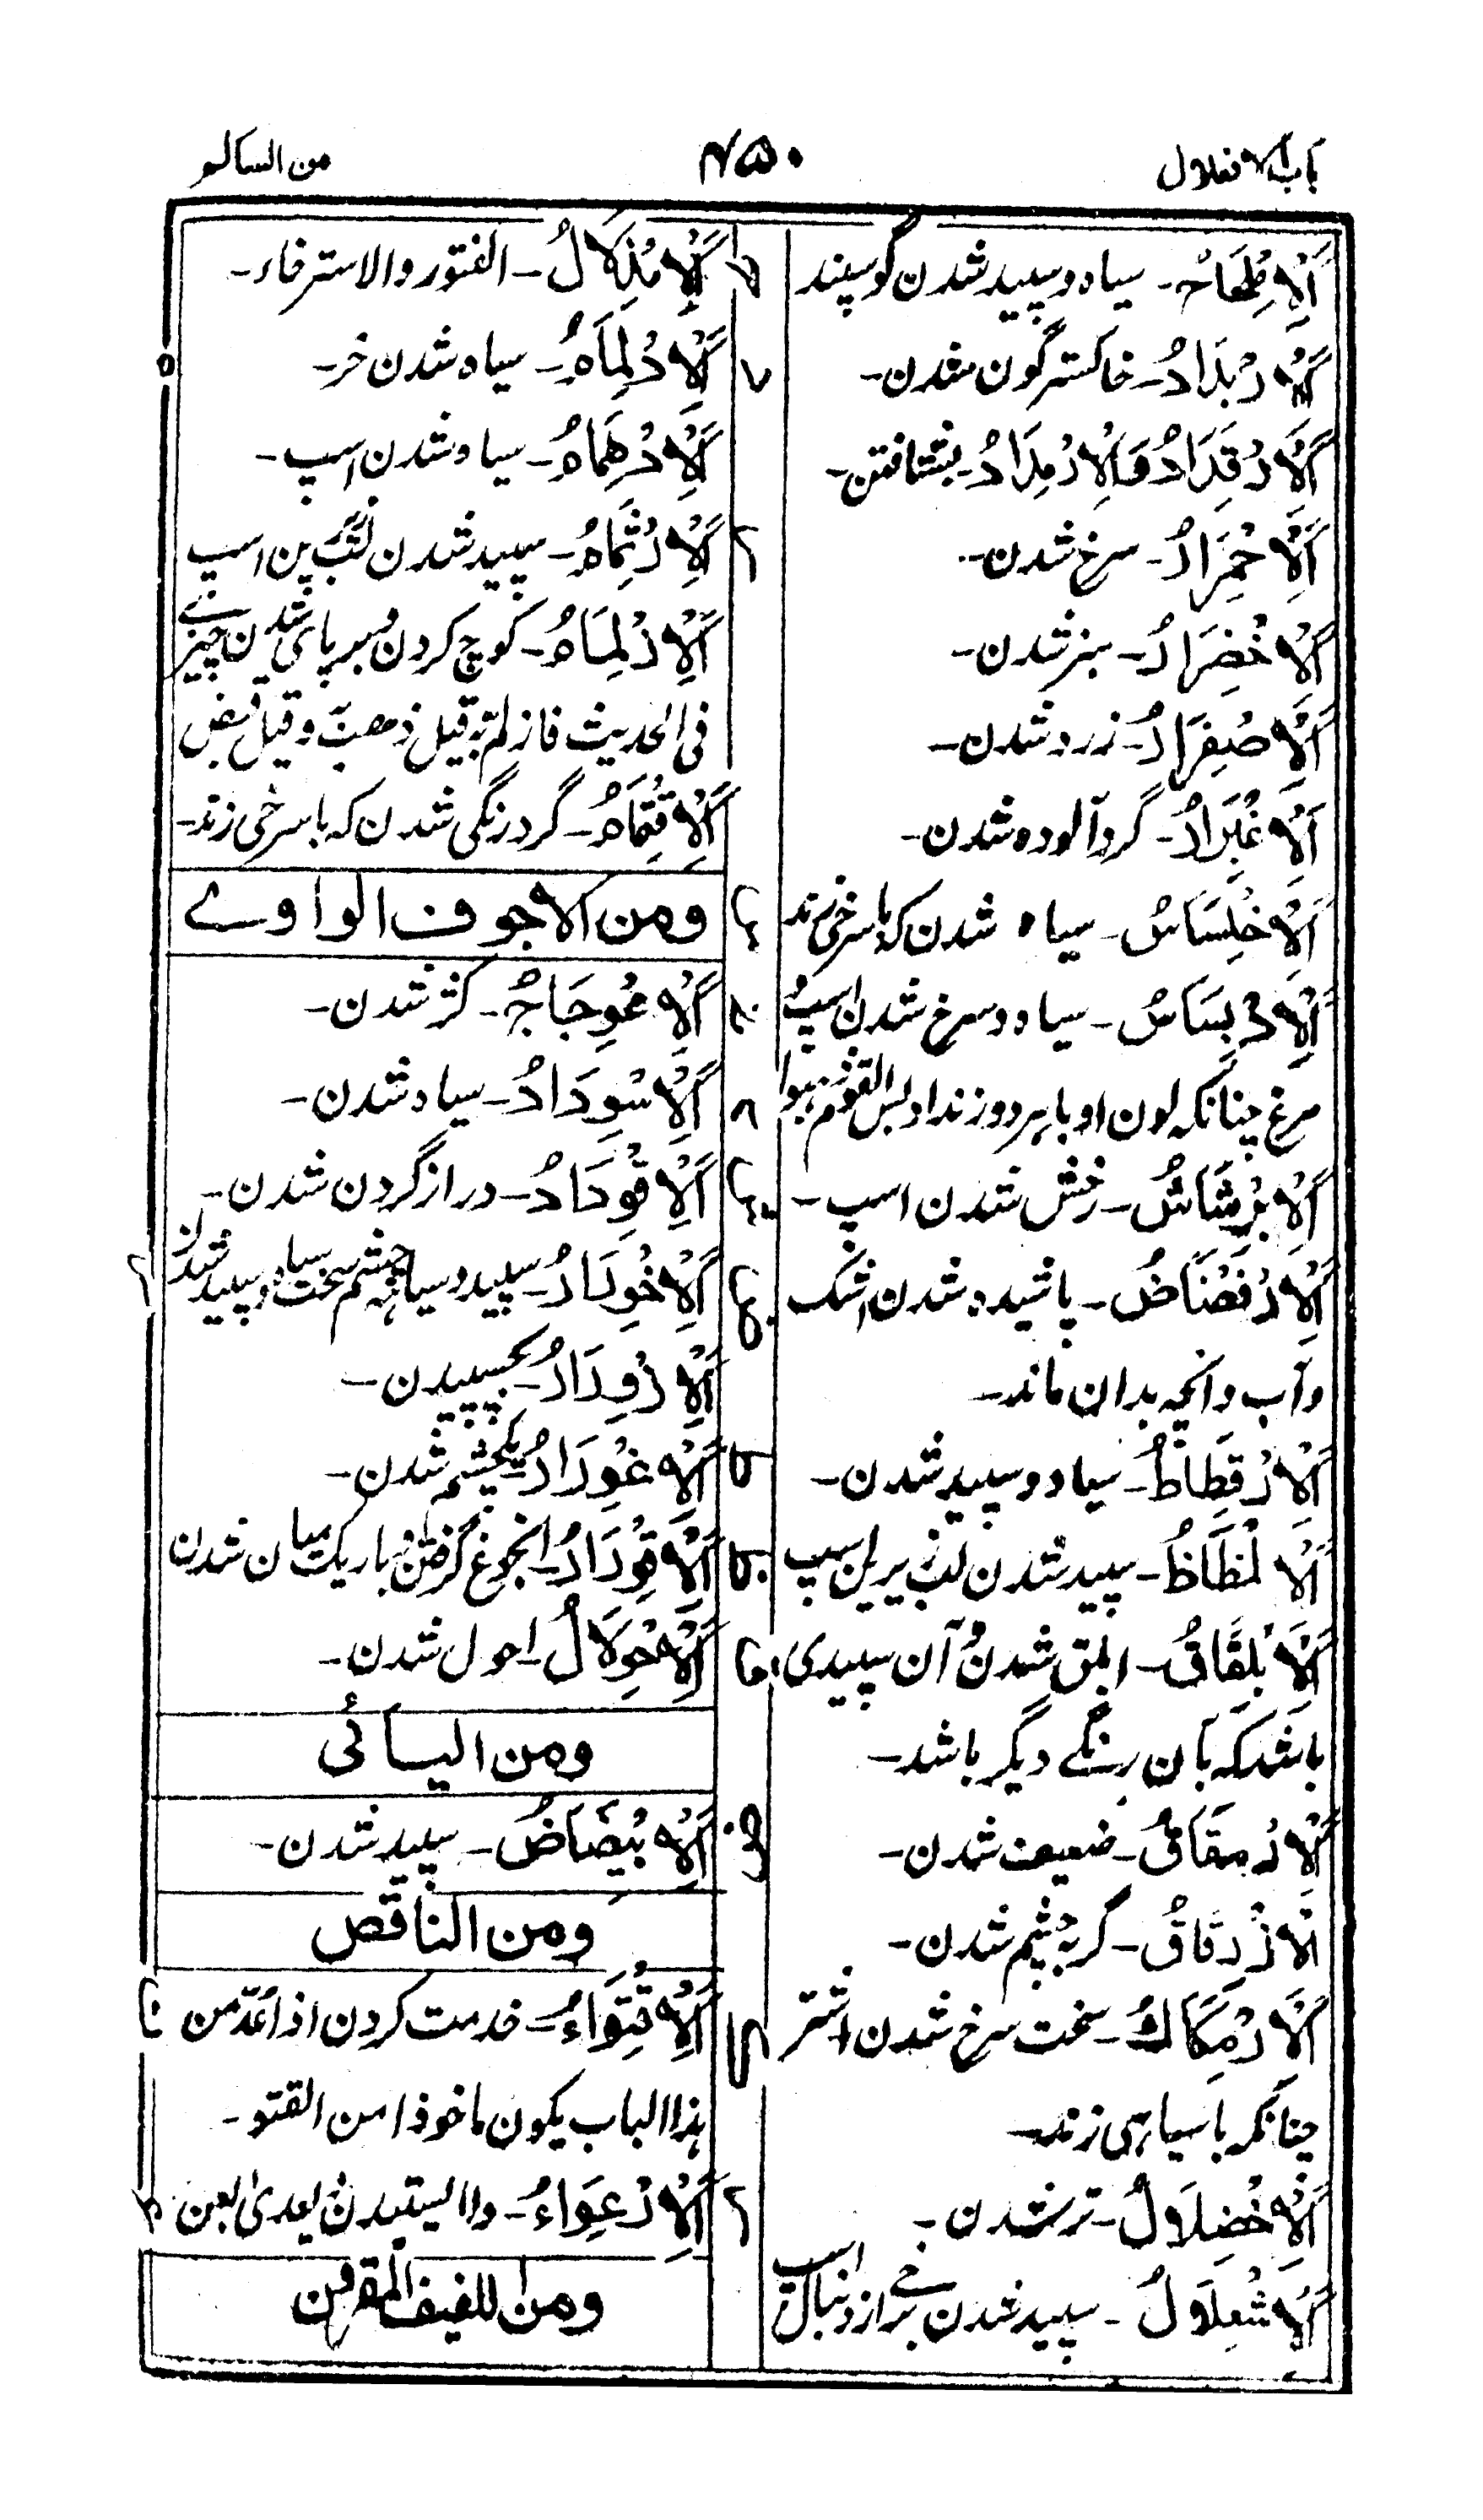 باب الافعلال
۴۵۰
من السالم
اَلْاِمْلِحَاحُ۔ سیاه و سپید شدن گوسپند
اَلْاِرْبِدَادُ۔ خاکستر گون شدن۔
اَلْاِرْقِدَادُ وَالْاِرْمِدَادُ۔ بشتافتن۔
اَلْاِحْمِرَارُ۔ سرخ شدن۔
اَلْاِخْضِرَارُ۔ سبز شدن۔
اَلْاِصْفِرَارُ۔ زرد شدن۔
اَلْاِغْبِرَارُ۔ گرد آلوده شدن۔
اَلْاِخْلِسَاسُ۔ سیاه شدن که با سرخی زند
اَلْاِدْبِسَاسُ۔ سیاه و سرخ شدن اسپ و
مرغ چنانکه لون او با هر دو زند
اَلْاِبْرِشَاشُ۔ رخش شدن اسپ۔
اَلْاِرْفِضَاضُ۔ پاشیده شدن اشک
و آب و آنچه بدان ماند۔
اَلْاِرْقِطَاطُ۔ سیاه و سپید شدن۔
اَلْاِلْمِظَاظُ۔ سپید شدن لب زیرین اسپ
اَلْاِبْلِقَاقُ۔ ابلق شدن و آن سپیدی
باشد که بآن رنگے دیگر باشد۔
اَلْاِرْمِقَاقُ۔ ضعیف شدن۔
اَلْاِزْرِقَاقُ۔ گربه چشم شدن۔
اَلْاِرْمِكَاكُ۔ سخت سرخ شدن اشتر
چنانکه با سیاهی زند۔
اَلْاِخْضِلَالُ۔ تر شدن۔
اَلْاِشْعِلَالُ۔ سپید شدن برخے از دنبال اسپ
اَلْاِمْذِلَالُ۔ الفتور والاسترخاء۔
اَلْاِدْلِمَامُ۔ سیاه شدن خر۔
اَلْاِدْهِمَامُ۔ سیاه شدن اسپ۔
اَلْاِرْثِمَامُ۔ سپید شدن لب زبرین اسپ
اَلْاِزْلِمَامُ۔ کوچ کردن و برپای شدن چیزے
فی الحدیث فازلم به قیل ذهب و قیل قبض
اَلْاِقْتِمَامُ۔ گرد رنگی شدن که با سرخی زند۔
ومن الاجوف الواوے
اَلْاِعْوِجَاجُ۔ کژ شدن۔
اَلْاِسْوِدَادُ۔ سیاه شدن۔
اَلْاِقْوِدَادُ۔ دراز گردن شدن۔
اَلْاِحْوِرَارُ۔ سپید و سیاه چشم سخت سیاه و سپید شدن
اَلْاِزْوِرَارُ۔ بچسپیدن۔
اَلْاِعْوِرَارُ۔ یکچشم شدن۔
اَلْاِقْوِرَارُ۔ انجوغ گرفتن و باریک میان شدن
اَلْاِحْوِلَالُ۔ احول شدن۔
ومن الیائی
اَلْاِبْيِضَاضُ۔ سپید شدن۔
ومن الناقص
اَلْاِقْتِوَاءُ۔ خدمت کردن
هذا الباب یکون ماخوذا من القتو۔
اَلْاِرْعِوَاءُ۔ وا ایستیدن یعدی بعن
ومن اللفیف المقرون